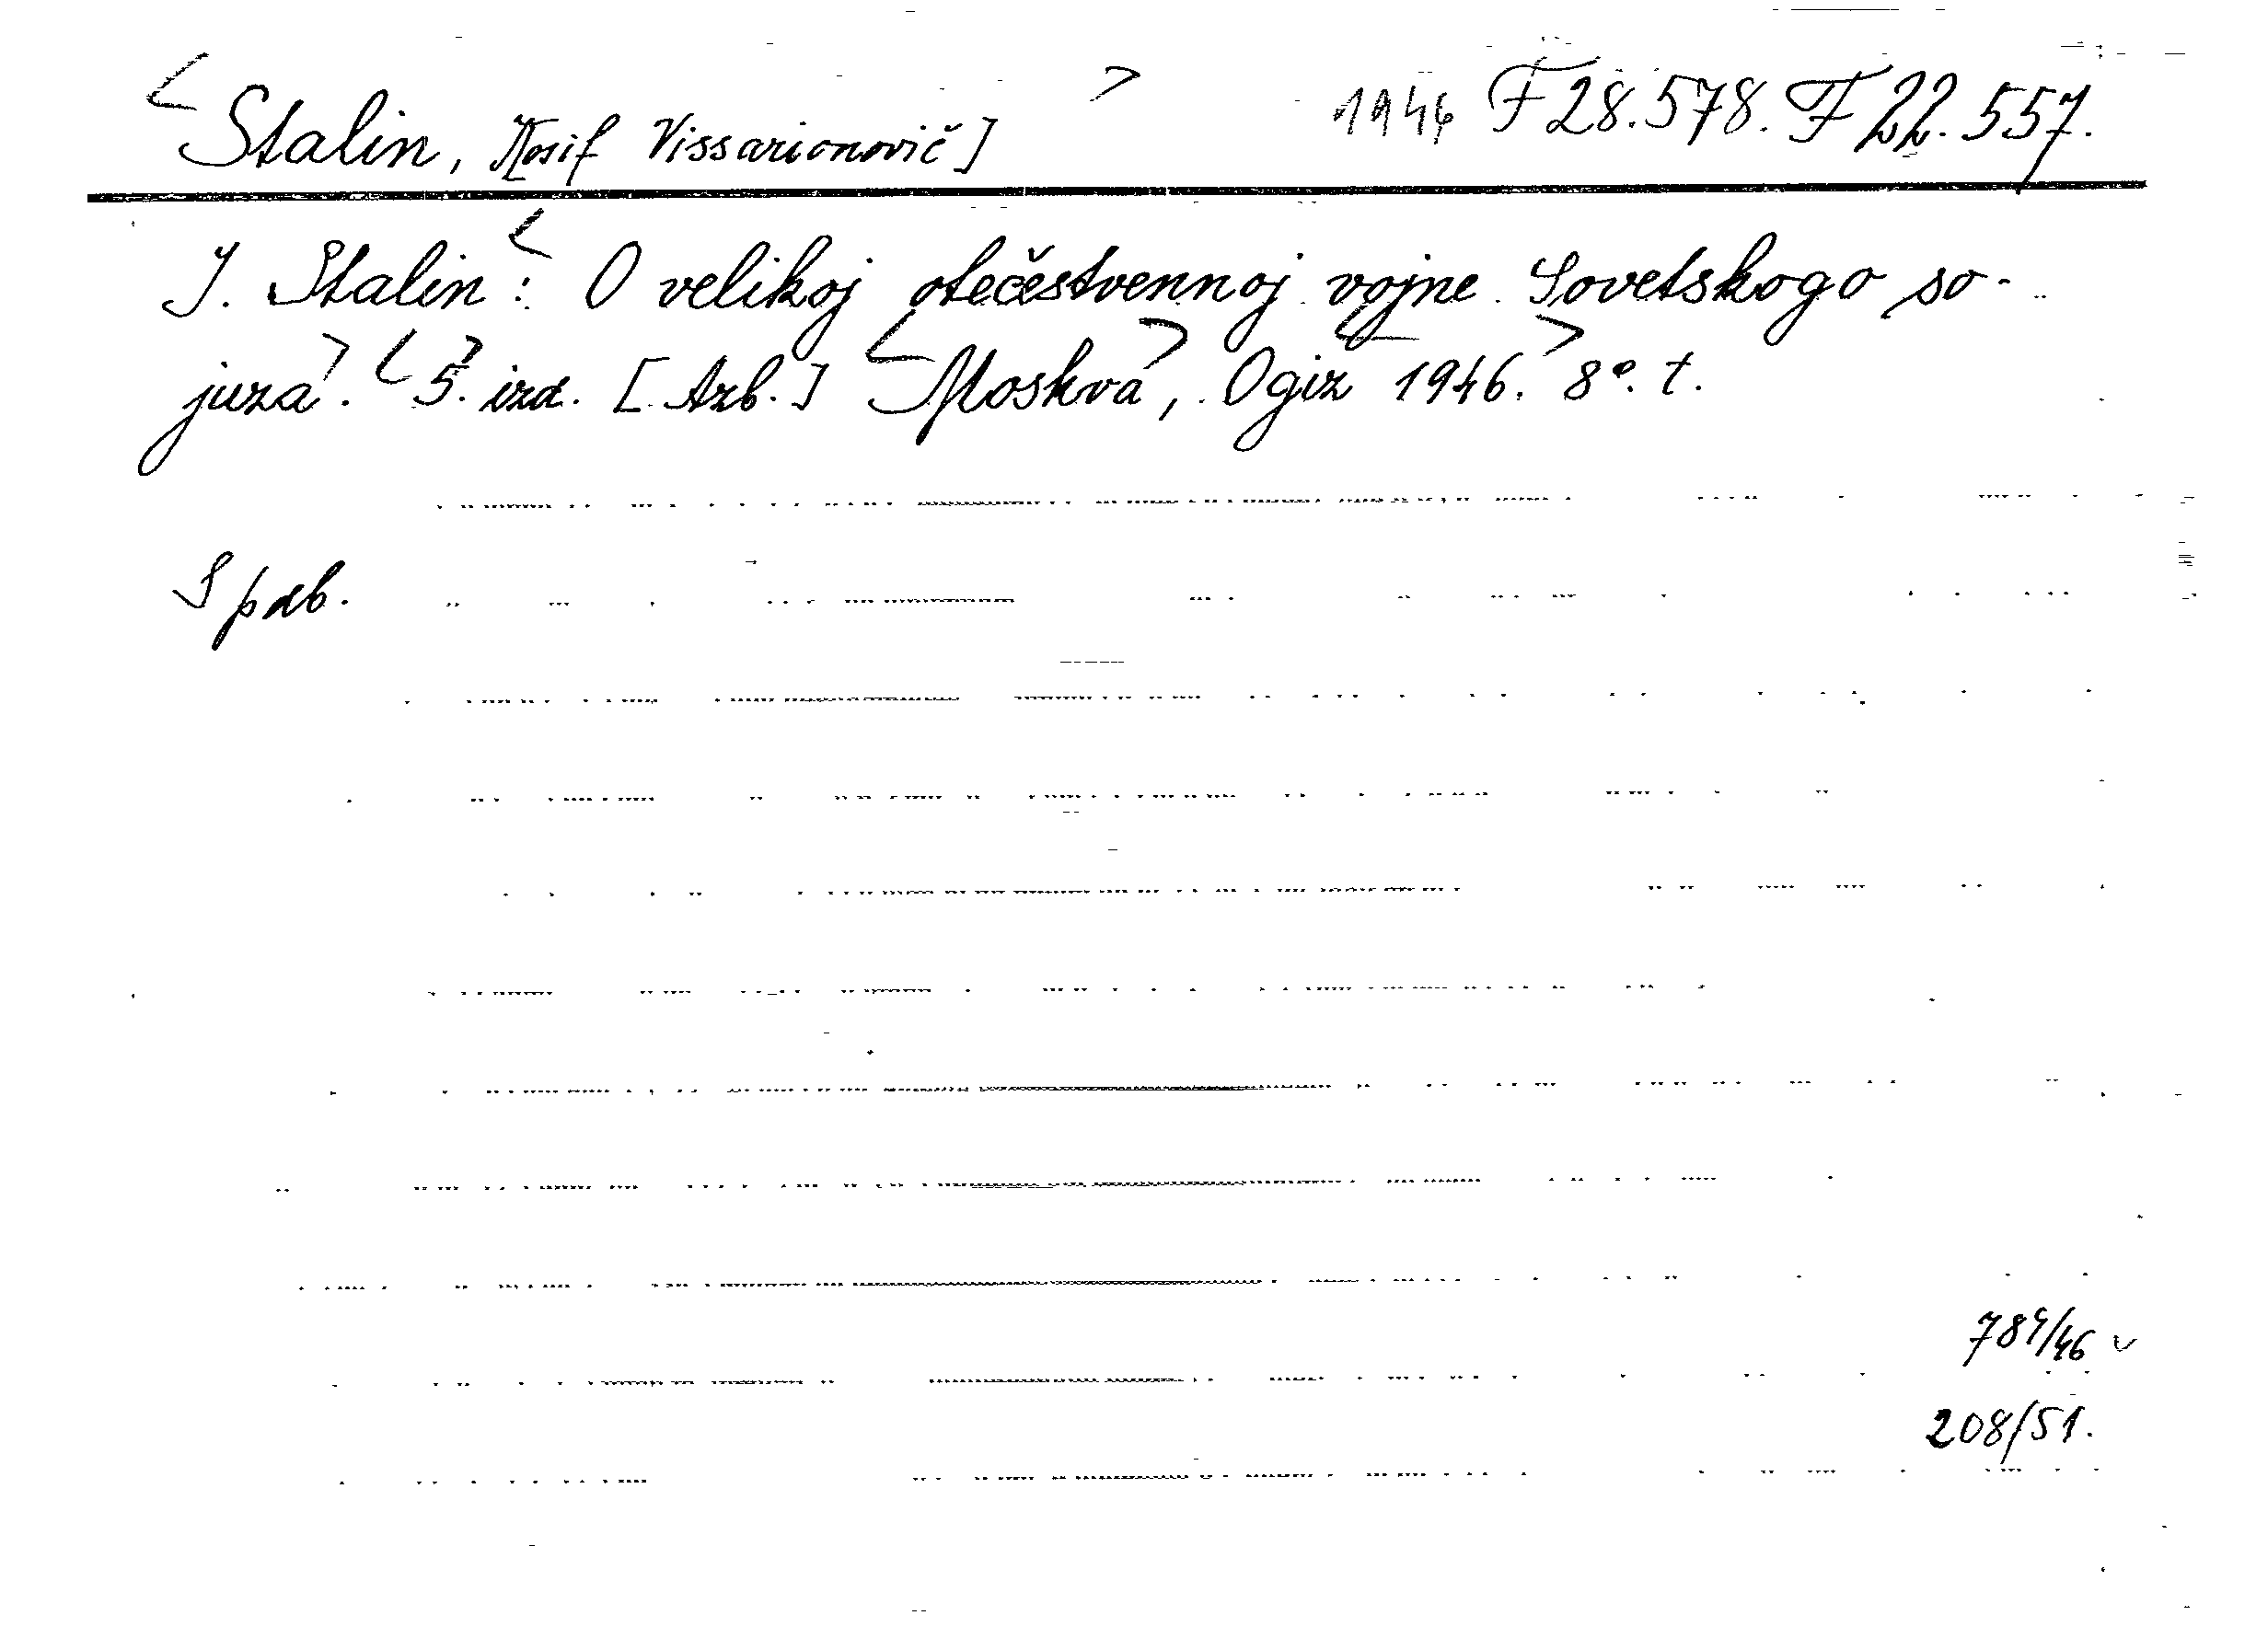 <Stalin, [Iosif Vissarionovič]> 1946 F 28.578. F 22.557.
J. Stalin: <O velikoj otečestvennoj vojne Sovetskogo so-
juza>. <5.> izd. [Azb.] <Moskva>, Ogiz <1946.> 8°. t.
S pdb.
784/46 v
208/51.